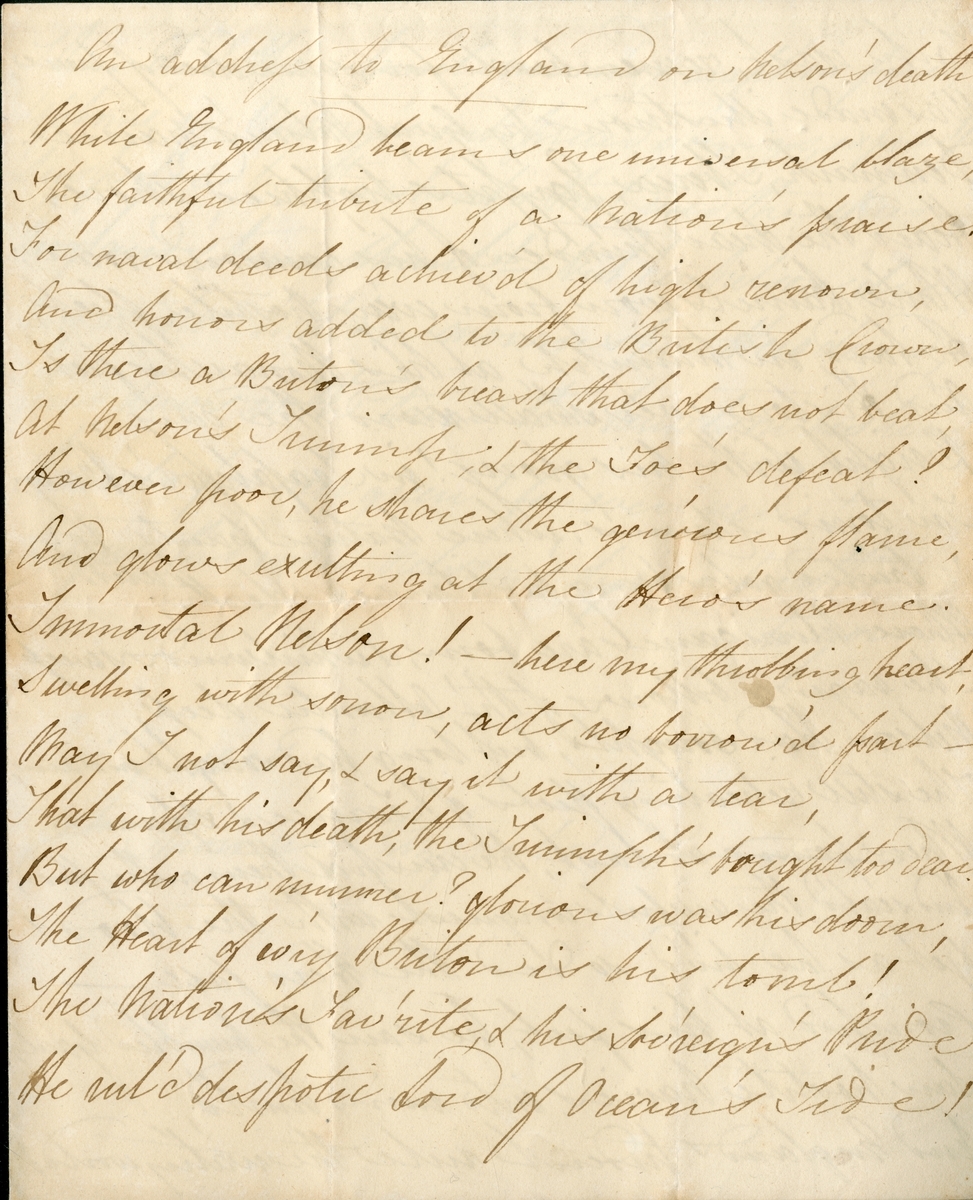 An address to England on Nelson's death
While England beams one universal blaze,
The faithful tribute of a Nation's praise.
For naval deeds achiev'd of high renown,
And honors added to the British Crown,
Is there a Briton's breast that does not beat,
At Nelson's Triumph, & the Foe's defeat?
However poor, he shares the gen'rous flame,
And glows exulting at the Hero's name.
Immortal Nelson! — here my throbbing heart,
Swelling with sorrow, acts no borrow'd part —
May I not say, & say it with a tear,
That with his death, the Triumph's bought too dear.
But who can murmer? glorious was his doom,
The Heart of ev'ry Briton is his tomb!
The Nation's Fav'rite, & his Sov'reign's Pride
He rul'd despotic Lord of Ocean's Tide!